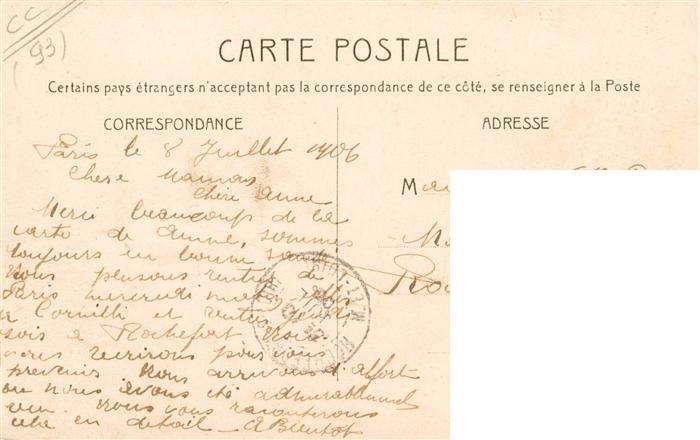 CC
(93)
CARTE POSTALE
Certains pays étrangers n'acceptant pas la correspondance de ce côté, se renseigner à la Poste
CORRESPONDANCE
ADRESSE
Paris le 8 Juillet 1906
Chere Maman
Chère Anne
Merci beaucoup de la
carte de Anne, sommes
toujours en bonne santé
nous pensons rentrer de
Paris mercredi
Cornille et rentrer jeudi
soir à Rochefort
vous ecrirons pour vous
prevenir Nous arrivons d'
ou nous avons été admirablement
vu. Nous vous raconterons
cela en detail - A Bientot
M
Ro